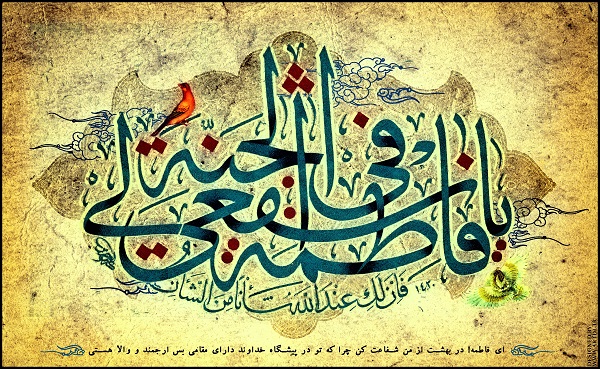 یا فاطمة اشفعی لی فی الجنة
فان لک عند الله شأنا من الشأن
۱۴۲۰
ای فاطمه! در بهشت از من شفاعت کن چرا که تو در پیشگاه خداوند دارای مقامی بس ارجمند و والا هستی